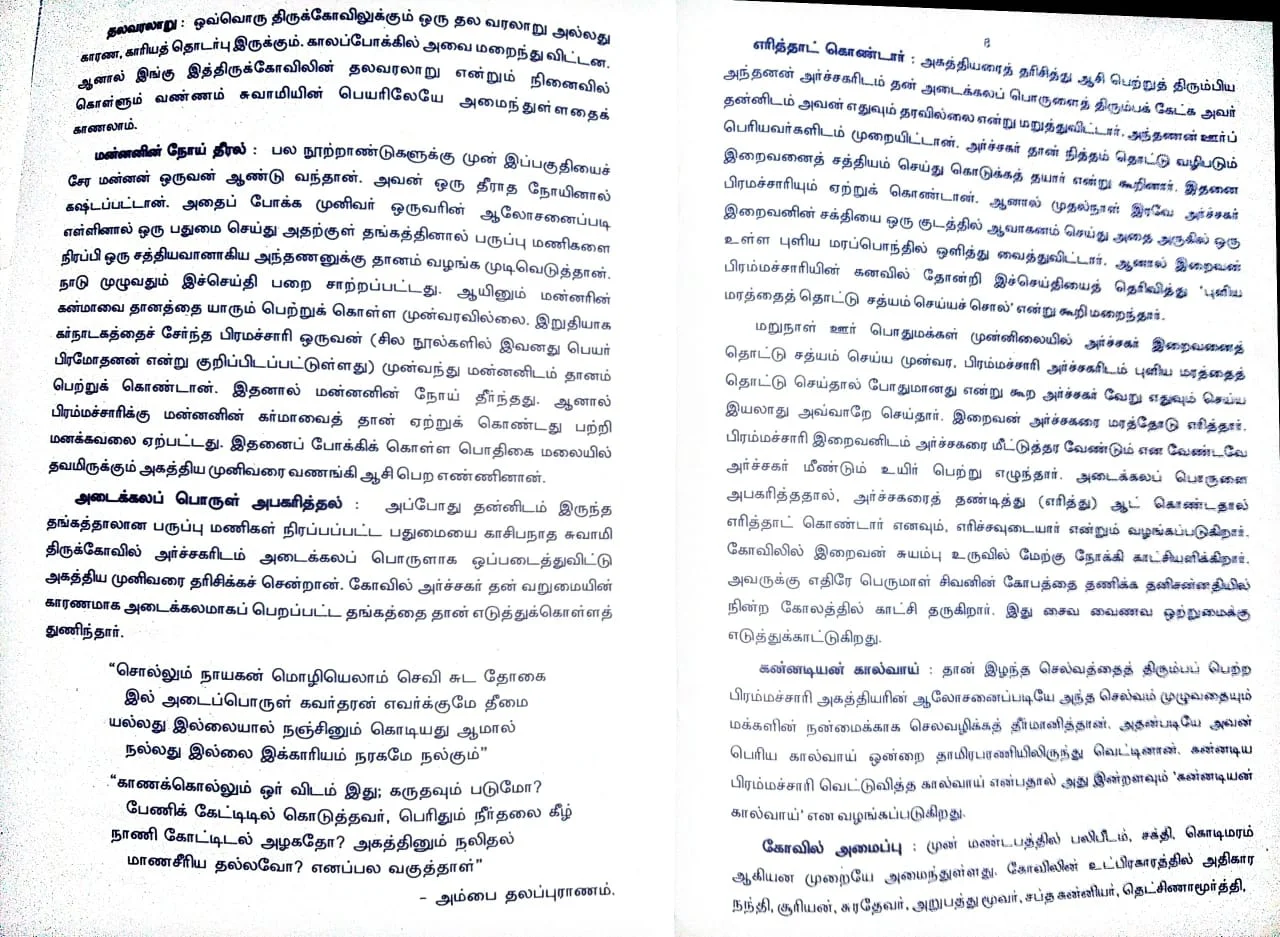 தலவரலாறு : ஒவ்வொரு திருக்கோவிலுக்கும் ஒரு தல வரலாறு அல்லது
காரண, காரியத் தொடர்பு இருக்கும். காலப்போக்கில் அவை மறைந்து விட்டன.
ஆனால் இங்கு இத்திருக்கோவிலின் தலவரலாறு என்றும் நினைவில்
கொள்ளும் வண்ணம் சுவாமியின் பெயரிலேயே அமைந்துள்ளதைக்
காணலாம்.
மன்னனின் நோய் தீரல் : பல நூற்றாண்டுகளுக்கு முன் இப்பகுதியைச்
சேர மன்னன் ஒருவன் ஆண்டு வந்தான். அவன் ஒரு தீராத நோயினால்
கஷ்டப்பட்டான். அதைப் போக்க முனிவர் ஒருவரின் ஆலோசனைப்படி
எள்ளினால் ஒரு பதுமை செய்து அதற்குள் தங்கத்தினால் பருப்பு மணிகளை
நிரப்பி ஒரு சத்தியவானாகிய அந்தணனுக்கு தானம் வழங்க முடிவெடுத்தான்.
நாடு முழுவதும் இச்செய்தி பறை சாற்றப்பட்டது. ஆயினும் மன்னரின்
கன்மாவை தானத்தை யாரும் பெற்றுக் கொள்ள முன்வரவில்லை. இறுதியாக
கர்நாடகத்தைச் சேர்ந்த பிரமச்சாரி ஒருவன் (சில நூல்களில் இவனது பெயர்
பிரமோதனன் என்று குறிப்பிடப்பட்டுள்ளது) முன்வந்து மன்னனிடம் தானம்
பெற்றுக் கொண்டான். இதனால் மன்னனின் நோய் தீர்ந்தது. ஆனால்
பிரம்மச்சாரிக்கு மன்னனின் கர்மாவைத் தான் ஏற்றுக் கொண்டது பற்றி
மனக்கவலை ஏற்பட்டது. இதனைப் போக்கிக் கொள்ள பொதிகை மலையில்
தவமிருக்கும் அகத்திய முனிவரை வணங்கி ஆசி பெற எண்ணினான்.
அடைக்கலப் பொருள் அபகரித்தல் : அப்போது தன்னிடம் இருந்த
தங்கத்தாலான பருப்பு மணிகள் நிரப்பப்பட்ட பதுமையை காசிபநாத சுவாமி
திருக்கோவில் அர்ச்சகரிடம் அடைக்கலப் பொருளாக ஒப்படைத்துவிட்டு
அகத்திய முனிவரை தரிசிக்கச் சென்றான். கோவில் அர்ச்சகர் தன் வறுமையின்
காரணமாக அடைக்கலமாகப் பெறப்பட்ட தங்கத்தை தான் எடுத்துக்கொள்ளத்
துணிந்தார்.
“சொல்லும் நாயகன் மொழியெலாம் செவி சுட தோகை
இல் அடைப்பொருள் கவர்தரன் எவர்க்குமே தீமை
யல்லது இல்லையால் நஞ்சினும் கொடியது ஆமால்
நல்லது இல்லை இக்காரியம் நரகமே நல்கும்”
“காணக்கொல்லும் ஓர் விடம் இது; கருதவும் படுமோ?
பேணிக் கேட்டிடில் கொடுத்தவர், பெரிதும் நீர்தலை கீழ்
நாணி கோட்டிடல் அழகதோ? அகத்தினும் நலிதல்
மாணசீரிய தல்லவோ? எனப்பல வகுத்தாள்”
– அம்பை தலப்புராணம்.
8
எரித்தாட் கொண்டார் : அகத்தியரைத் தரிசித்து ஆசி பெற்றுத் திரும்பிய
அந்தனன் அர்ச்சகரிடம் தன் அடைக்கலப் பொருளைத் திரும்பக் கேட்க அவர்
தன்னிடம் அவன் எதுவும் தரவில்லை என்று மறுத்துவிட்டார். அந்தணன் ஊர்ப்
பெரியவர்களிடம் முறையிட்டான். அர்ச்சகர் தான் நித்தம் தொட்டு வழிபடும்
இறைவனைத் சத்தியம் செய்து கொடுக்கத் தயார் என்று கூறினார். இதனை
பிரமச்சாரியும் ஏற்றுக் கொண்டான். ஆனால் முதல்நாள் இரவே அர்ச்சகர்
இறைவனின் சக்தியை ஒரு குடத்தில் ஆவாகனம் செய்து அதை அருகில் ஒரு
உள்ள புளிய மரப்பொந்தில் ஒளித்து வைத்துவிட்டார். ஆனால் இறைவன்
பிரம்மச்சாரியின் கனவில் தோன்றி இச்செய்தியைத் தெரிவித்து ‘புளிய
மரத்தைத் தொட்டு சத்யம் செய்யச் சொல்’ என்று கூறி மறைந்தார்.
மறுநாள் ஊர் பொதுமக்கள் முன்னிலையில் அர்ச்சகர் இறைவனைத்
தொட்டு சத்யம் செய்ய முன்வர, பிரம்மச்சாரி அர்ச்சகரிடம் புளிய மரத்தைத்
தொட்டு செய்தால் போதுமானது என்று கூற அர்ச்சகர் வேறு எதுவும் செய்ய
இயலாது அவ்வாறே செய்தார். இறைவன் அர்ச்சகரை மரத்தோடு எரித்தார்.
பிரம்மச்சாரி இறைவனிடம் அர்ச்சகரை மீட்டுத்தர வேண்டும் என வேண்டவே
அர்ச்சகர் மீண்டும் உயிர் பெற்று எழுந்தார். அடைக்கலப் பொருளை
அபகரித்ததால், அர்ச்சகரைத் தண்டித்து (எரித்து) ஆட் கொண்டதால்
எரித்தாட் கொண்டார் எனவும், எரிச்சவுடையார் என்றும் வழங்கப்படுகிறார்.
கோவிலில் இறைவன் சுயம்பு உருவில் மேற்கு நோக்கி காட்சியளிக்கிறார்.
அவருக்கு எதிரே பெருமாள் சிவனின் கோபத்தை தணிக்க தனிசன்னதியில்
நின்ற கோலத்தில் காட்சி தருகிறார். இது சைவ வைணவ ஒற்றுமைக்கு
எடுத்துக்காட்டுகிறது.
கன்னடியன் கால்வாய் : தான் இழந்த செல்வத்தைத் திரும்பப் பெற்ற
பிரம்மச்சாரி அகத்தியரின் ஆலோசனைப்படியே அந்த செல்வம் முழுவதையும்
மக்களின் நன்மைக்காக செலவழிக்கத் தீர்மானித்தான். அதன்படியே அவன்
பெரிய கால்வாய் ஒன்றை தாமிரபரணியிலிருந்து வெட்டினான். கன்னடிய
பிரம்மச்சாரி வெட்டுவித்த கால்வாய் என்பதால் அது இன்றளவும் ‘கன்னடியன்
கால்வாய்’ என வழங்கப்படுகிறது.
கோவில் அமைப்பு : முன் மண்டபத்தில் பலிபீடம், சக்தி, கொடிமரம்
ஆகியன முறையே அமைந்துள்ளது. கோவிலின் உட்பிரகாரத்தில் அதிகார
நந்தி, சூரியன், சுரதேவர், அறுபத்து மூவர், சப்த கன்னியர், தெட்சிணாமூர்த்தி,